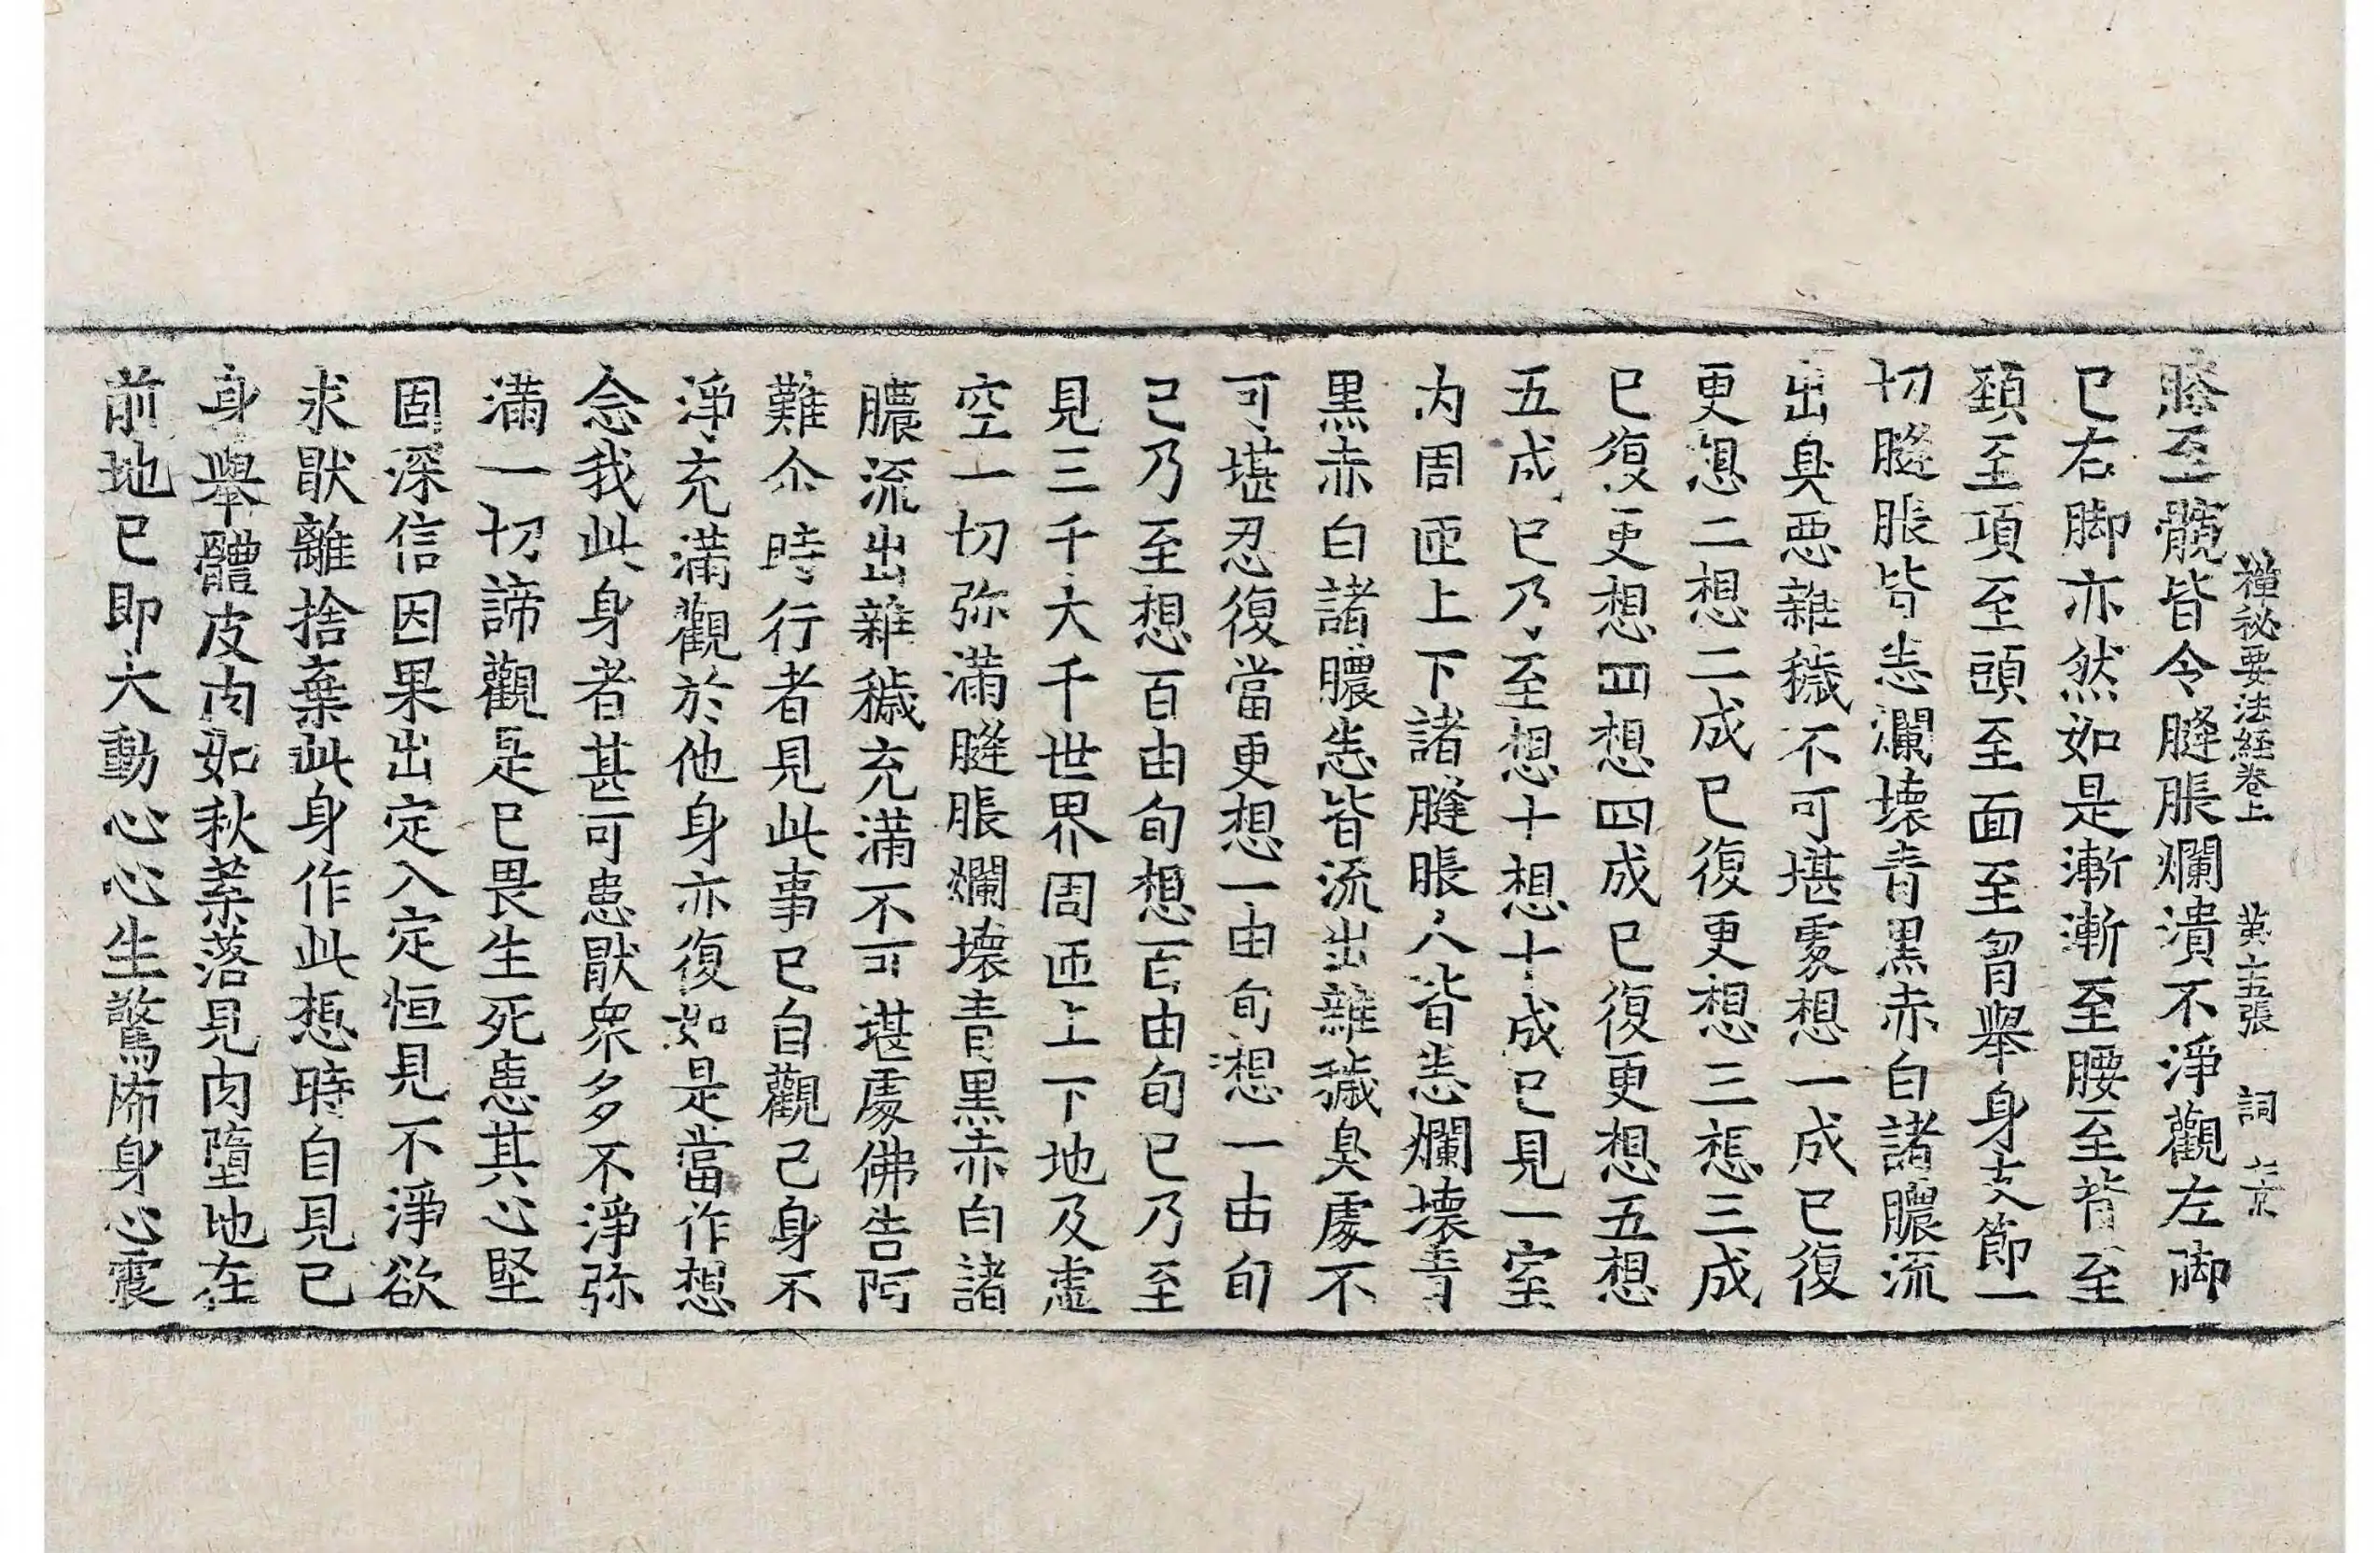 禪祕要法經卷上 黃 五張 詞
膝至髖皆令膖脹爛潰不淨觀左脚
已右脚亦然如是漸漸至腰至背至
頸至項至頭至面至胷舉身支節一
切膖脹皆悉瀾壞青黑赤白諸膿流
出臭惡雜穢不可堪䖏想一成已復
更想二想二成已復更想三想三成
已復更想四想四成已復更想五想
五成已乃至想十想十成已見一室
內周匝上下諸膖脹人皆悉爛壞青
黑赤白諸膿悉皆流出雜穢臭處不
可堪忍復當更想一由旬想一由旬
已乃至想百由旬想百由旬已乃至
見三千大千世界周匝上下地及虛
空一切弥滿膖脹爛壞青黑赤白諸
膿流出雜穢充滿不可堪處佛告阿
難尒時行者見此事已自觀己身不
淨充滿觀於他身亦復如是當作想
念我此身者甚可患猒衆多不淨弥
滿一切諦觀是已畏生死患其心堅
固深信因果出定入定恒見不淨欲
求猒離捨棄此身作此想時自見己
身舉體皮肉如秋葉落見肉墮地在
前地已即大動心心生驚怖身心震